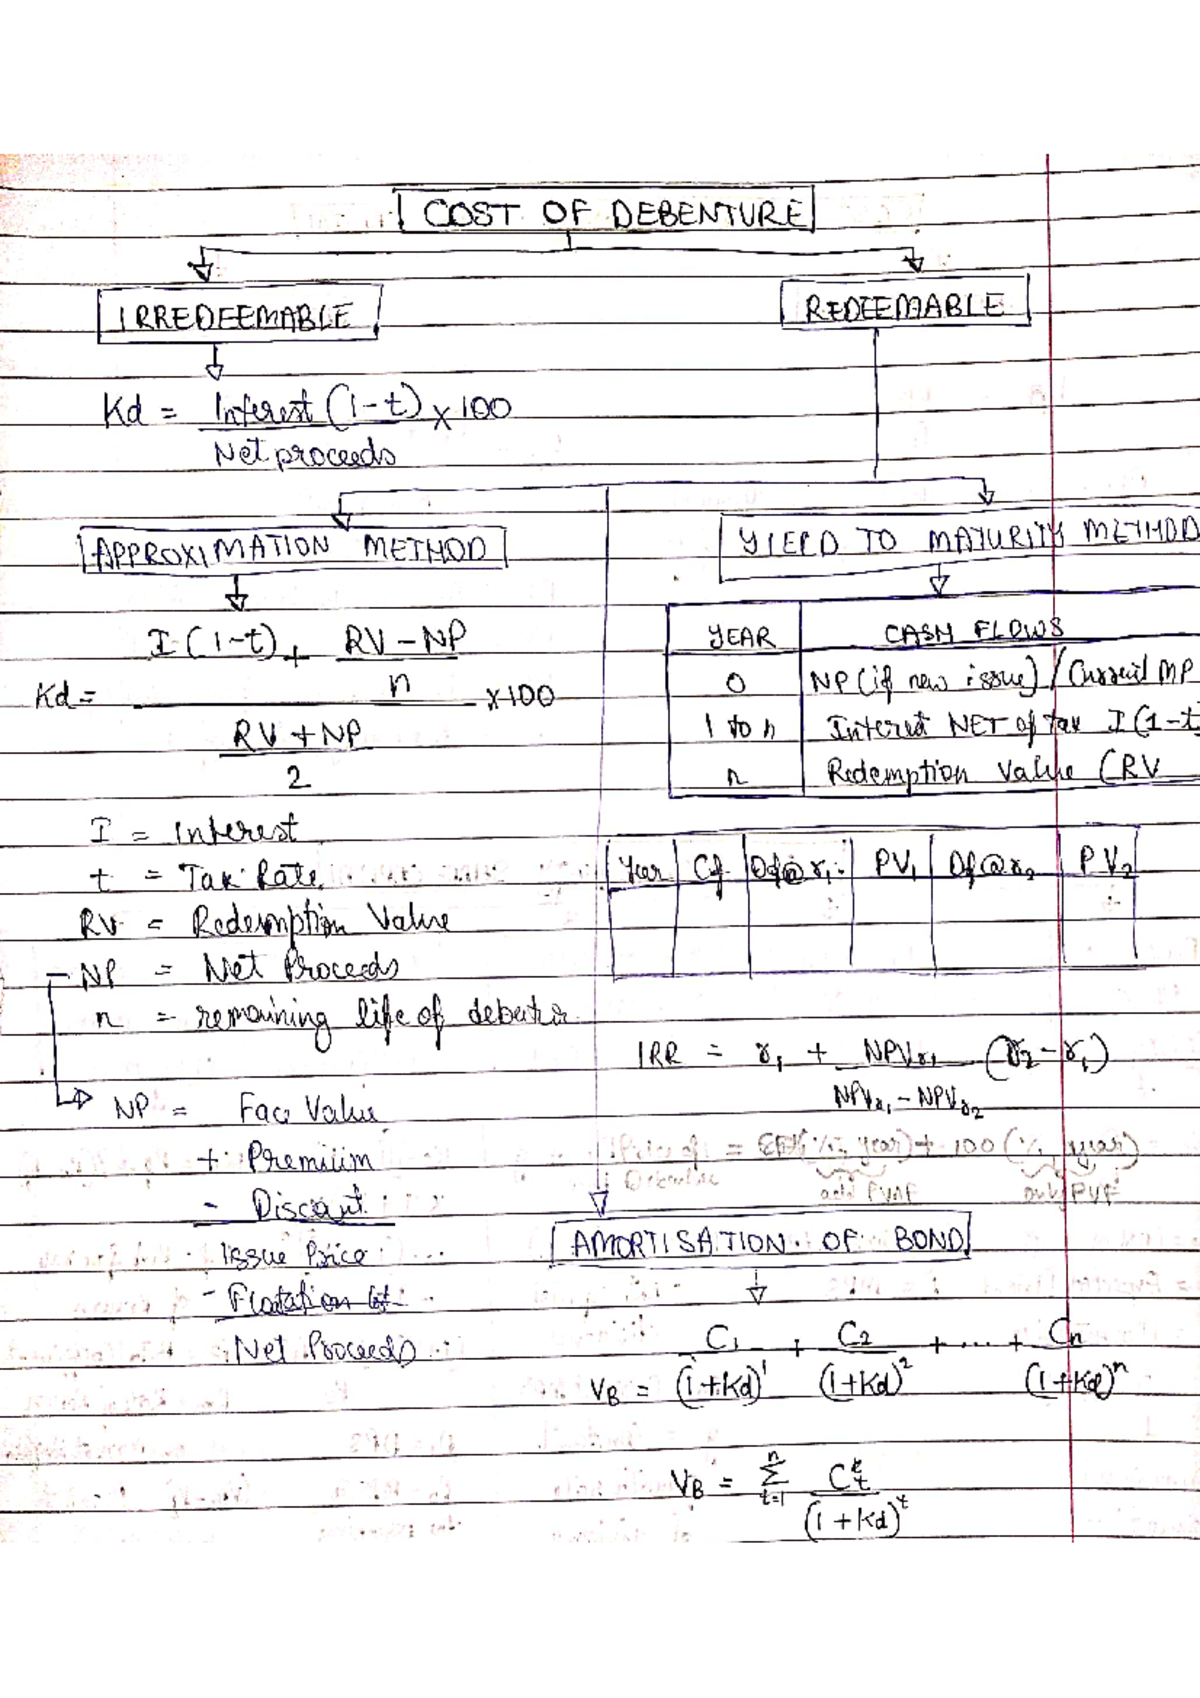 COST OF DEBENTURE
IRREDEEMABLE
REDEEMABLE
Kd = Interest (1-t) x 100
Net proceeds
APPROXIMATION METHOD
I (1-t) + RV - NP
n
Kd = x 100
RV + NP
2
I = Interest
t = Tax Rate
RV = Redemption Value
NP = Net Proceeds
n = remaining life of
NP = Face Value
+ Premium
- Discount
Issue Price
- Floatation
Net Proceeds
YIELD TO MATURITY METHOD
YEAR CASH FLOWS
0 NP (if new issue) / Current MP
1 to n Interest NET of tax I (1-t)
n Redemption Value (RV
Year Cf Df@r1 PV1 Df@r2 PV2
IRR = r1 + NPVr1 (r2 - r1)
NPVr1 - NPVr2
AMORTISATION OF BOND
C1 + C2 + .... + Cn
VB = (1+Kd)^1 (1+Kd)^2 (1+Kd)^n
VB = n Σ t=1 Ct
(1+Kd)^t